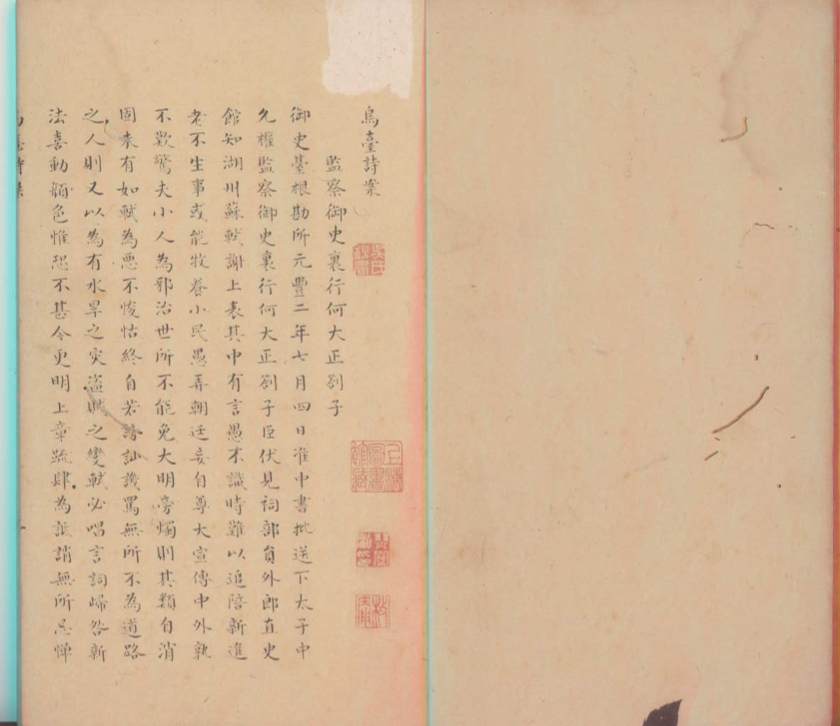 烏臺詩案
監察御史裏行何大正劄子
御史臺根勘所元豐二年七月四日准中書批送下太子中
允權監察御史裏行何大正劄子臣伏見祠部員外郎直史
館知湖州蘇軾謝上表其中有言愚不識時難以追陪新進
老不生事或能牧養小民愚弄朝廷妄自尊大宣傳中外孰
不歎驚夫小人為邪治世所不能免大明旁燭則其類自消
固未有如軾為惡不悛怙終自若謗訕譏罵無所不為道路
之人則又以為有水旱之災盜賊之變軾必唱言詞歸咎新
法喜動顏色惟恐不甚今更明上章疏肆為詆誚無所忌憚